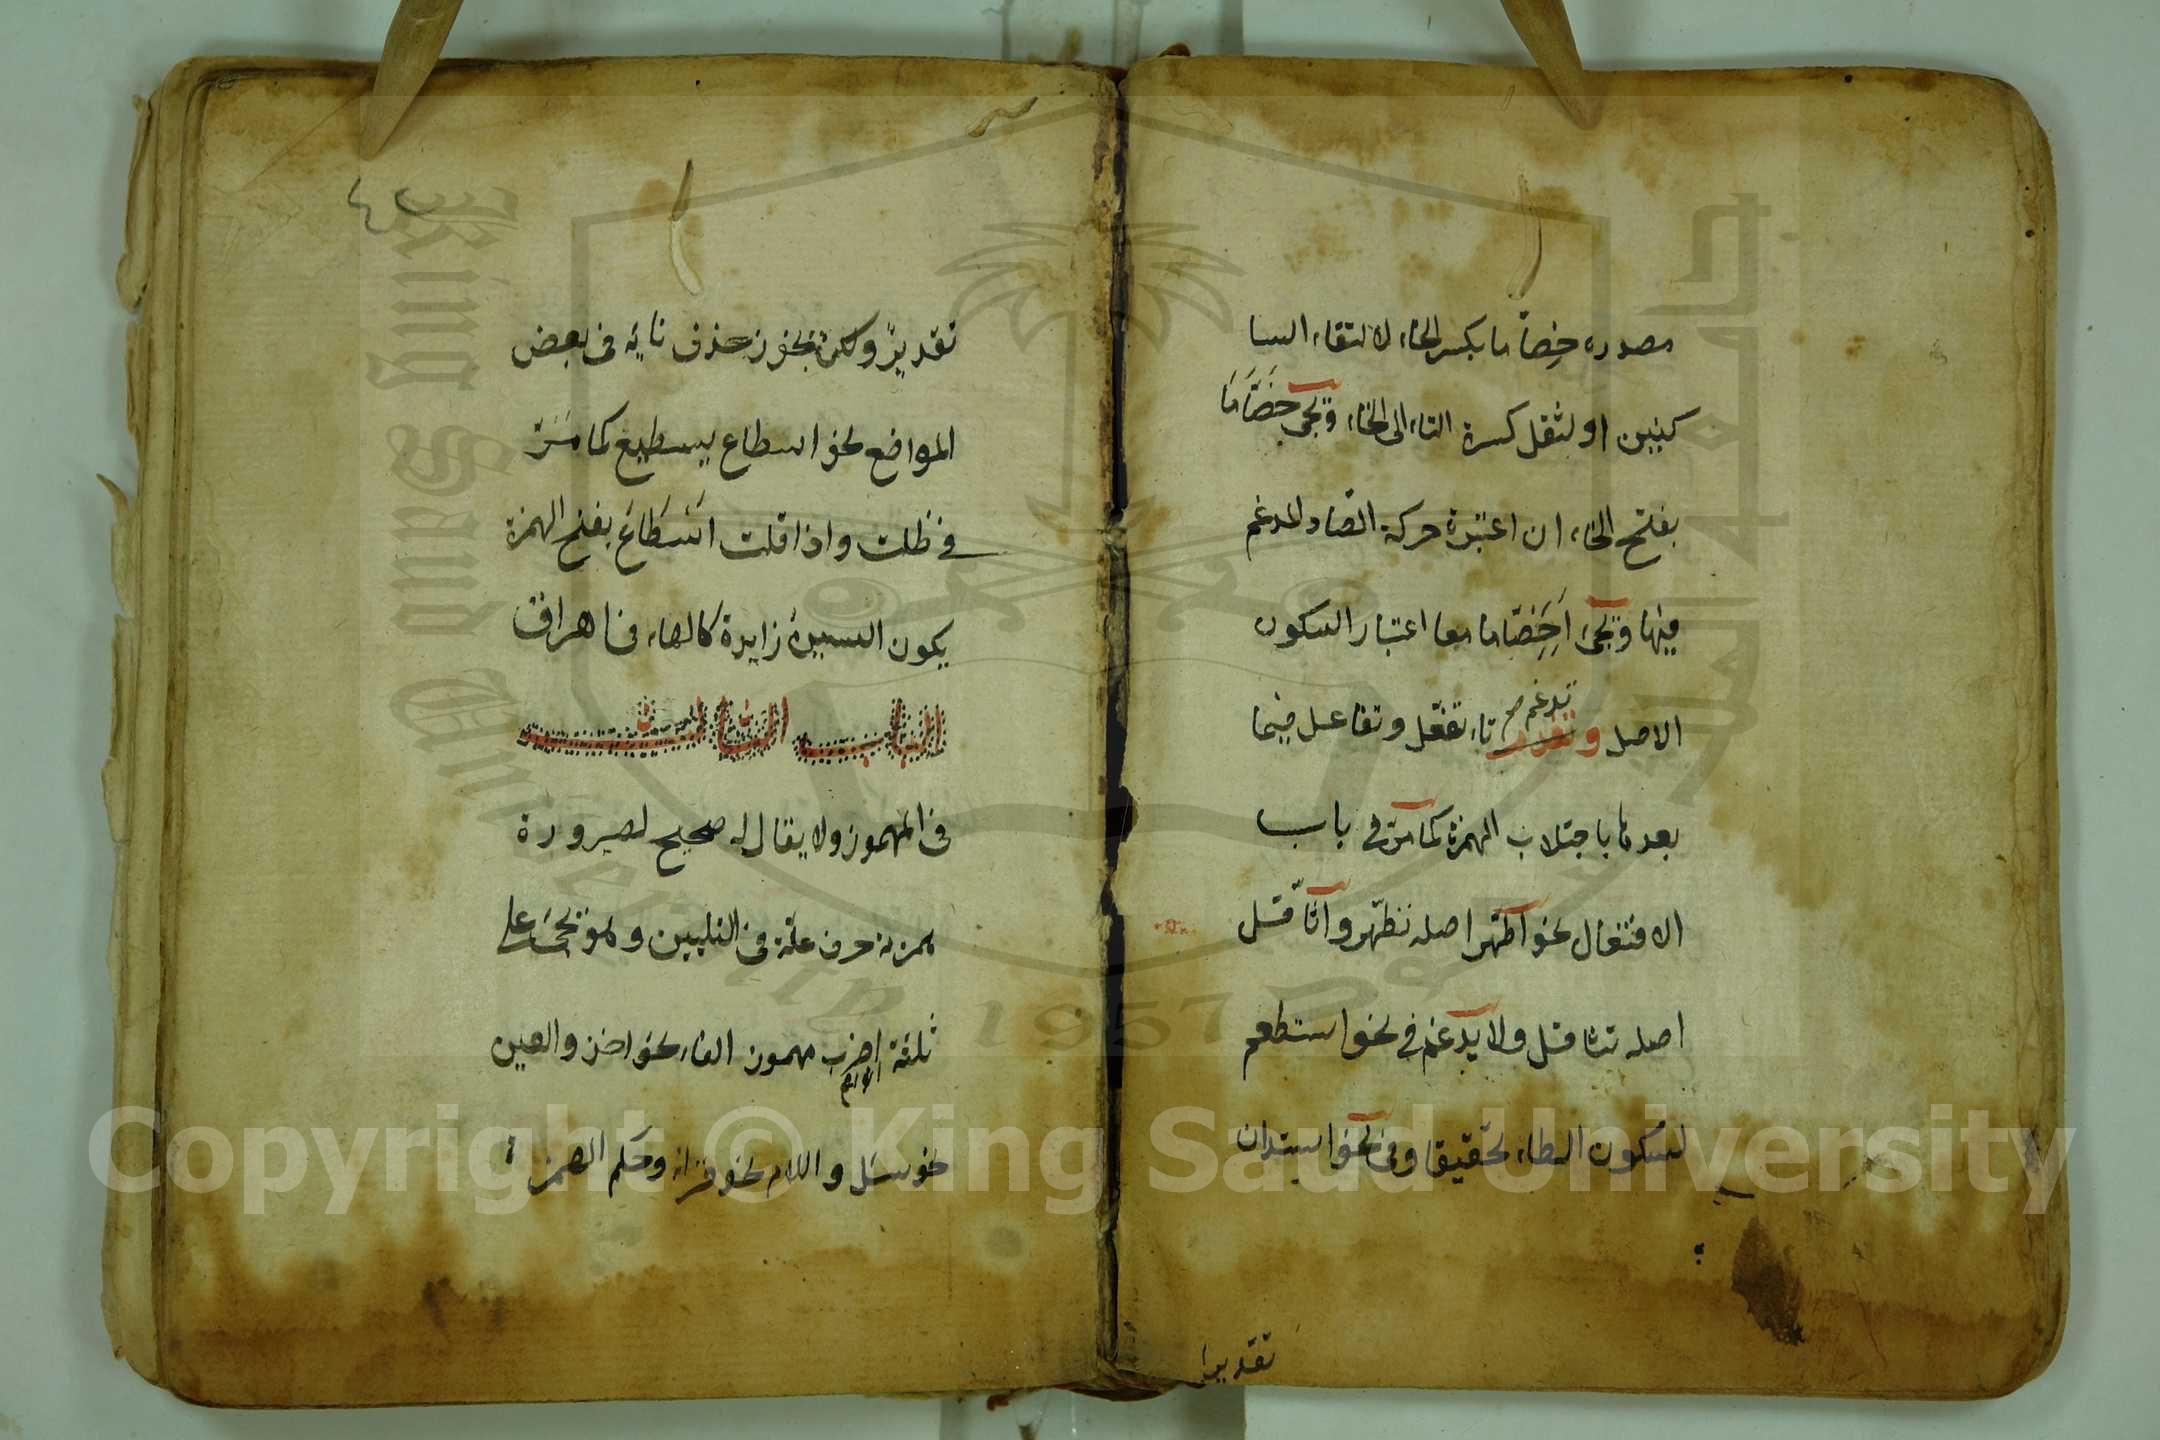 مصدره خِصاّما بكسر الخاء لالتقاء السا
كنين او لنقل كسرة التاء الى الخاء ويجئ خَصَّامًا
بفتح الخاء ان اعتبرة حركة الصّاد المدغم
فيها ويجئ اَخِصّاما معا اعتبار السكون
الاصل و تدغم صح تاء تفعّل وتفاعل فيما
بعدها باجتلاب الهمزة كما مرّ فى باب
الافتعال نحو اطّهر اصله تطّهر واثّاقل
اصله تثاقل ولا يدغم فى نحو استطعم
لسكون الطاء تحقيقا وفى نحو استدان
تقديرا
٤٢
تقديرًا ولكن يجوز حذف تايه فى بعض
المواضع نحو اسطاع يسطيع كما مَرّ
فى ظلت واذا قلت اَسْطَاعَ بفتح الهمزة
يكون السين زايدة كالهاء فى اهراق
الباب الثانى
فى المهموز ولا يقال له صحيح لصيرورة
همزته حرف علة فى التليين وهو يجئ على
ثلثة اضرب مهموز الفاء نحو اخذ والعين
نحو سئل واللام نحو قرا وحكم الهمزة
King Saud University
1957
Copyright © King Saud University